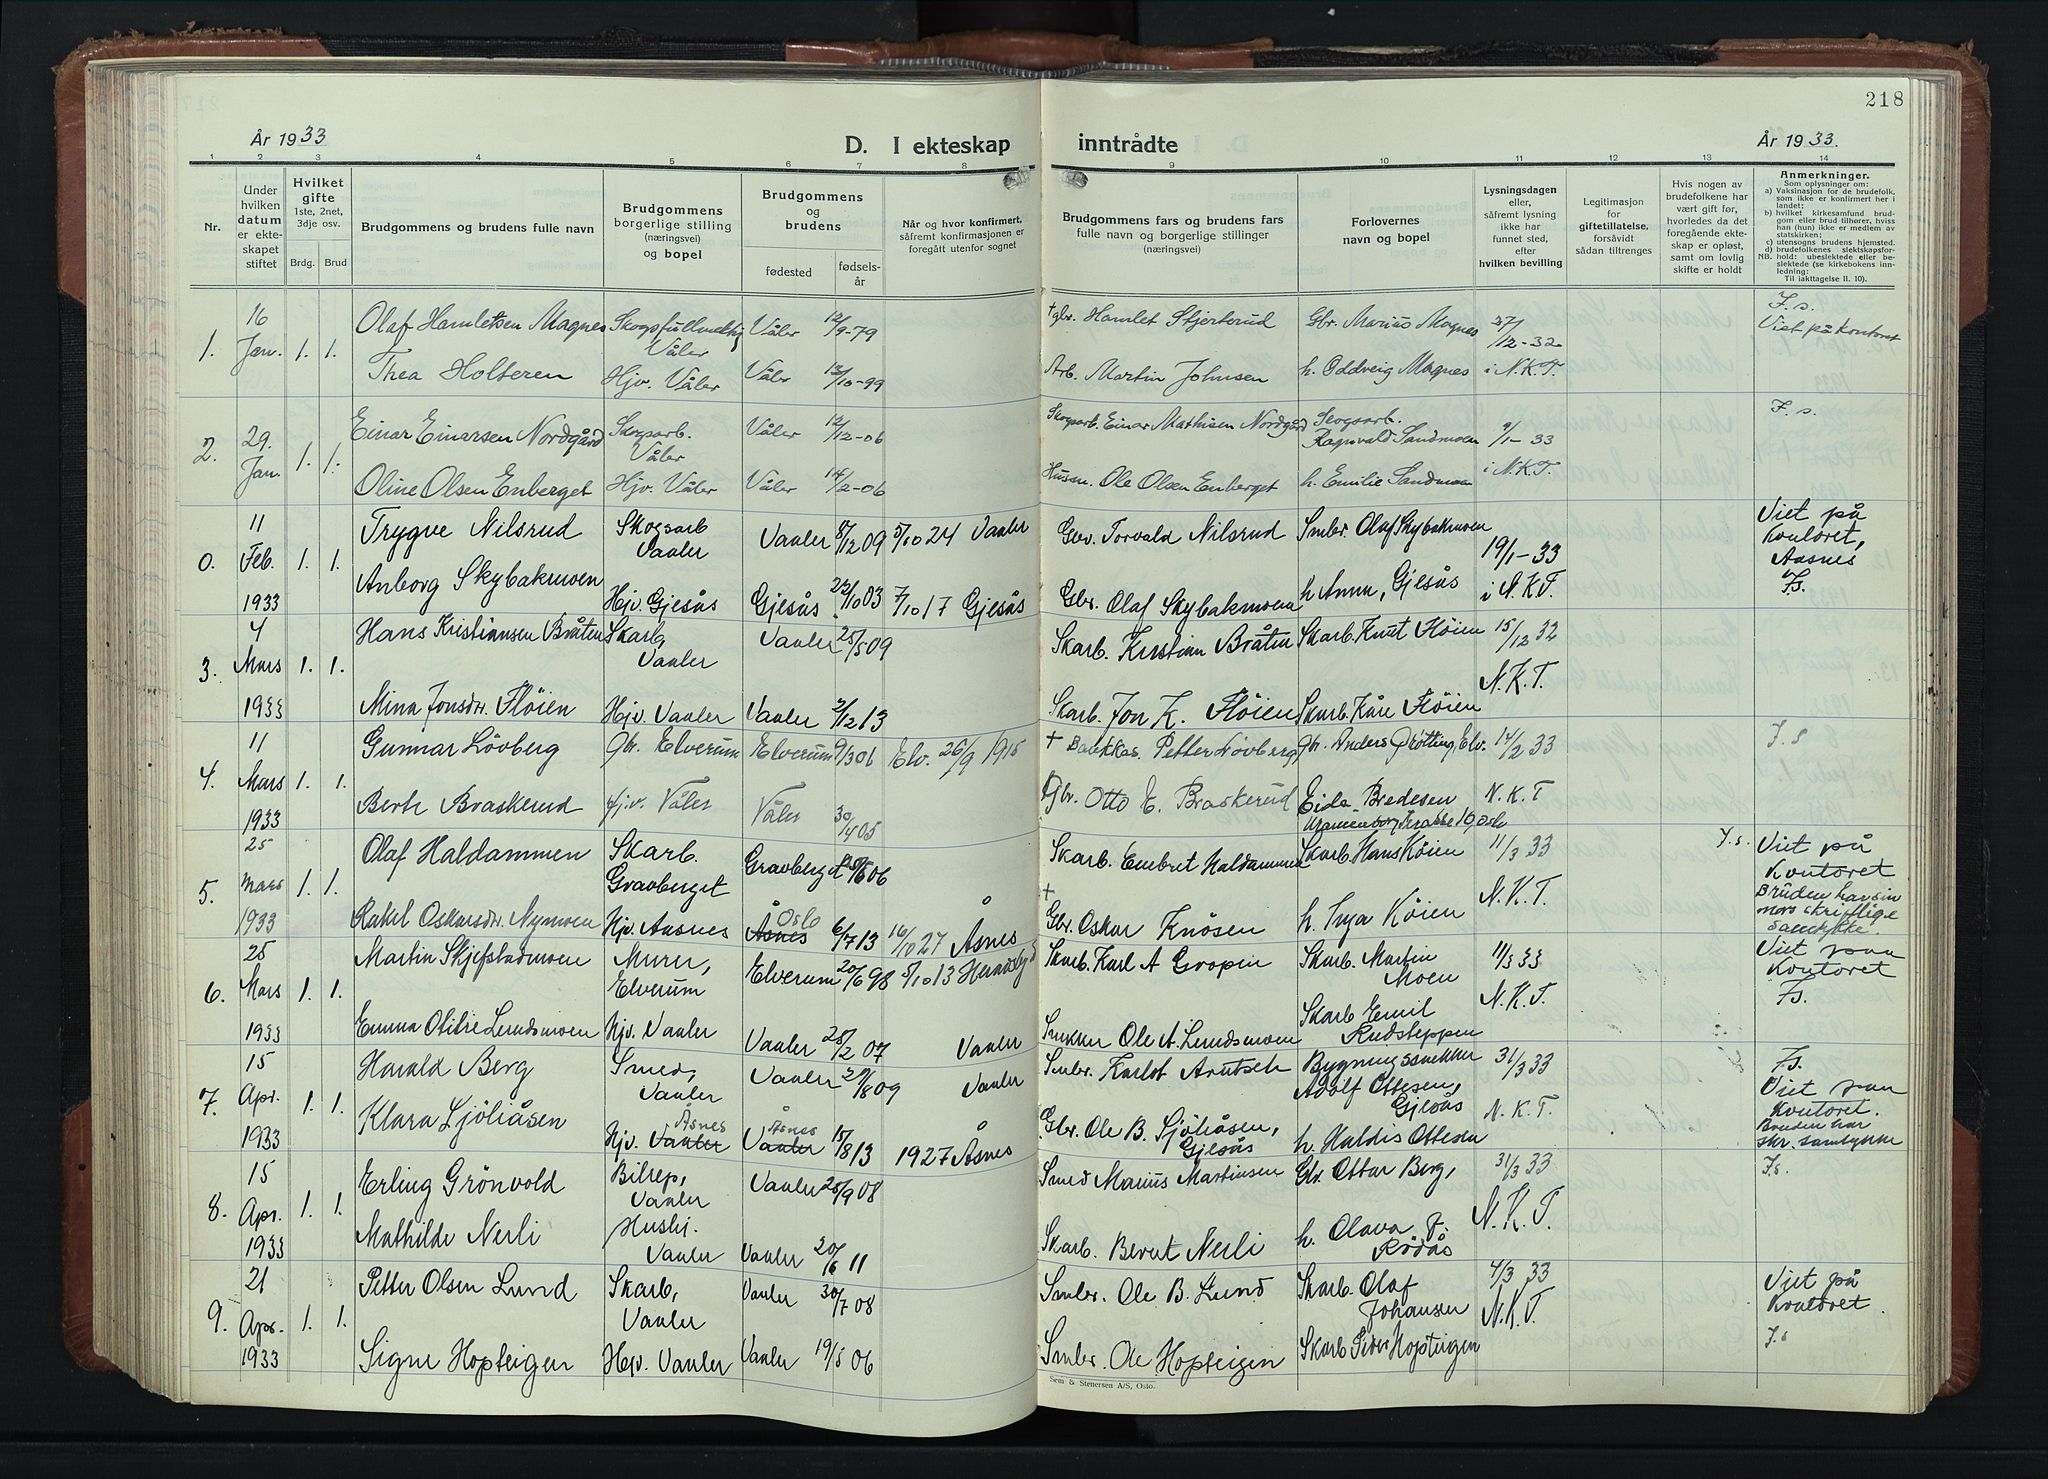 218
År 1933
D. I ekteskap inntrådte
År 1933.
1 2 3 4 5 6 7 8 9 10 11 12 13 14
Nr.
Under hvilken datum er ekteskapet stiftet
Hvilket gifte 1ste, 2net, 3dje osv.
Brdg. Brud
Brudgommens og brudens fulle navn
Brudgommens borgerlige stilling (næringsvei) og bopel
Brudgommens og brudens
fødested
fødselsår
Når og hvor konfirmert, såfremt konfirmasjonen er foregått utenfor sognet
Brudgommens fars og brudens fars fulle navn og borgerlige stillinger (næringsvei)
Forlovernes navn og bopel
Lysningsdagen eller, såfremt lysning ikke har funnet sted, efter hvilken bevilling
Legitimasjon for giftetillatelse, forsåvidt sådan tiltrenges
Hvis nogen av brudefolkene har vært gift før, hvorledes da det foregående ekteskap er opløst, samt om lovlig skifte er holdt
Anmerkninger.
Som oplysninger om:
a) Vaksinasjon for de brudefolk, som ikke er konfirmert her i landet;
b) hvilket kirkesamfund brudgom eller brud tilhører, hviss han (hun) ikke er medlem av statskirken;
c) utensogns brudens hjemsted.
d) brudefolkenes slektskapsforhold: ubeslektede eller beslektede (se kirkebokens innledning:
NB. Til iakttagelse II. 10).
1. 16 Jan. 1. 1.
Olaf Hamletsen Magnes Skogsfullmektig Våler Våler 12/9-79 † gbr. Hamlet Stjertrud Gbr. Marius Magnes 27/12-32 F. s. Viet på kontoret
Thea Holteren Hjv. Våler Våler 13/10-99 Arb. Martin Johnsen h. Oddveig Magnes i N.K.T.
2. 29. Jan. 1. 1.
Einar Einarsen Nordgård Skogsarb. Våler Våler 12/12-06 Skogsarb. Einar Mathisen Nordgård Skogsarb. Ragnvald Sandmoen 9/1-33 F. s.
Oline Olsen Enberget Hjv. Våler Våler 14/2-06 Husm. Ole Olsen Enberget h. Emilie Sandmoen i N.K.T.
0. 11 Feb. 1933 1. 1.
Trygve Nilsrud Skogsarb Vaaler Vaaler 8/12 09 5/10 24 Vaaler Gbr. Torvald Nilsrud Smbr. Olaf Skybakmoen 19/1-33 Viet på kontoret, Aasnes
Anborg Skybakmoen Hjv. Gjesås Gjesås 22/10 03 7/10 17 Gjesås Gbr. Olaf Skybakmoen h Anna, Gjesås i N.K.T. Fs.
3. 4 Mars 1933 1. 1.
Hans Kristiansen Bråten Skarb, Vaaler Vaaler 25/5 09 Skarb. Kristian Bråten Skarb. Knut Flöien 15/12 32
Mina Jonsdr. Flöien Hjv. Vaaler Vaaler 2/12 13 Skarb. Jon K. Flöien Skarb. Kåre Flöien N.K.T.
4. 11 Mars 1933 1. 1.
Gunnar Lövberg gbr. Elverum Elverum 9/3 06 Elv. 26/9 1915 † Petter Lövberg gbr. Anders Grötting, Elv. 14/2 33 F. s
Berte Braskerud Hjv. Våler Våler 30/4 05 Gbr. Otto E. Braskerud Eida Bredesen N.K.T
5. 25 Mars 1933 1. 1.
Olaf Haldammen Skarb. Gravberget Gravberget 06 Skarb. Embret Haldammen Skarb. Hans Köien 11/3 33 F.s. Viet på kontoret
Rakel Oskarsdr. Nymoen Hjv. Aasnes Åsnes Oslo 6/7 13 16/10 27 Åsnes † Gbr. Oskar Knösen h. Inga Köien N.K.T. Bruden har sin mors skriftlige samtykke.
6. 25 Mars 1933 1. 1.
Martin Skjefstadmoen Murer, Elverum Elverum 20/6 98 5/10 13 Skarb. Karl A Gropen Skarb. Martin Moen 11/3 33 Viet paa kontoret
Emma Otilie Lundsmoen Hjv. Vaaler Vaaler 25/2 07 Vaaler Snekker Ole A. Lundsmoen Skarb Emil Rudsteppen N.K.T. Fs.
7. 15 Apr. 1933 1. 1.
Harald Berg Smed, Vaaler Vaaler 09 Vaaler Smbr. Bygningssnekker Adolf Ottesen, Gjesås 31/3 33 Fs. Viet paa kontoret.
Klara Sjöliåsen Hjv. Vaaler Åsnes Vaaler Åsnes 15/8 13 1927 Åsnes Gbr. Ole B. Sjöliåsen, Gjesås h. Haldis Ottesen N.K.T. Bruden har skr. samtykke
8. 15 Apr. 1933 1. 1.
Erling Grönvold Bilrep, Vaaler Vaaler 25/9 08 Smed Marius Martinsen Gbr. Ottar Berg, 31/3 33 Fs.
Mathilde Nerli Hushj. Vaaler Vaaler 20/6 11 Skarb. Bernt Nerli h. Olava Rödås N.K.T.
9. 21 Apr. 1933 1. 1.
Petter Olsen Lund Skarb, Vaaler Vaaler 30/7 08 Smbr. Ole B. Lund Skarb. Olaf Johansen 4/3 33 Viet på kontoret.
Signe Hopteigen Hjv. Vaaler Vaaler 19/5 06 Smbr. Ole Hopteigen Skarb Hopteigen N.K.T. F.s
Sem & Stenersen A/S, Oslo.